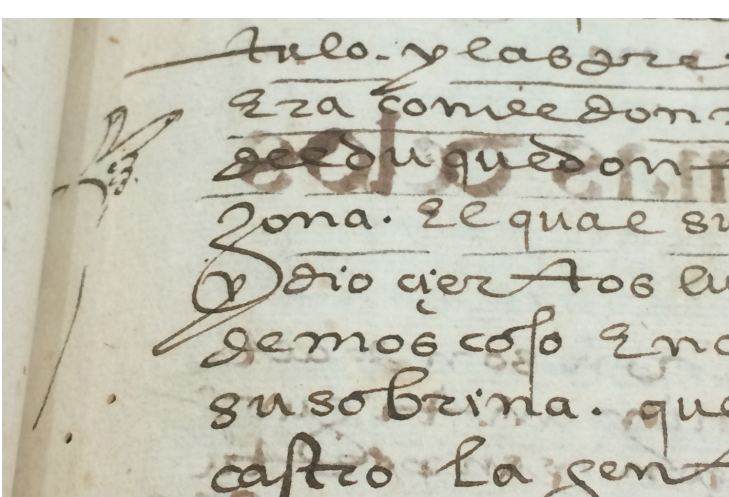 tulo. y las gre
Era comẽdon
del duque don
zona. El qual su
y dio çiertos lu
demos coso En
su sobrina. que
castro la gent